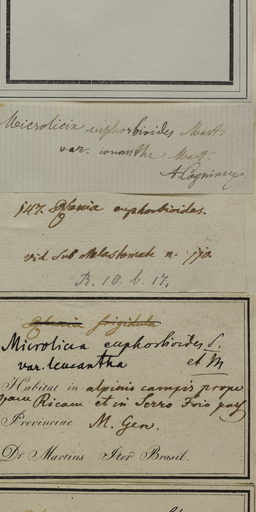 Microlicia euphorbioides Mart.
var. ionantha Mart.
A. Cogniaux
euphorbioides.
vid. sub Melastomate n.
R. 10. b. 17.
frigidula
Microlicia euphorbioides
var. leucantha et M
Habitat in alpinis campis prope
Ricam et in Serro Frio
Provinciae M. Gen.
Dr Martius Iter Brasil.